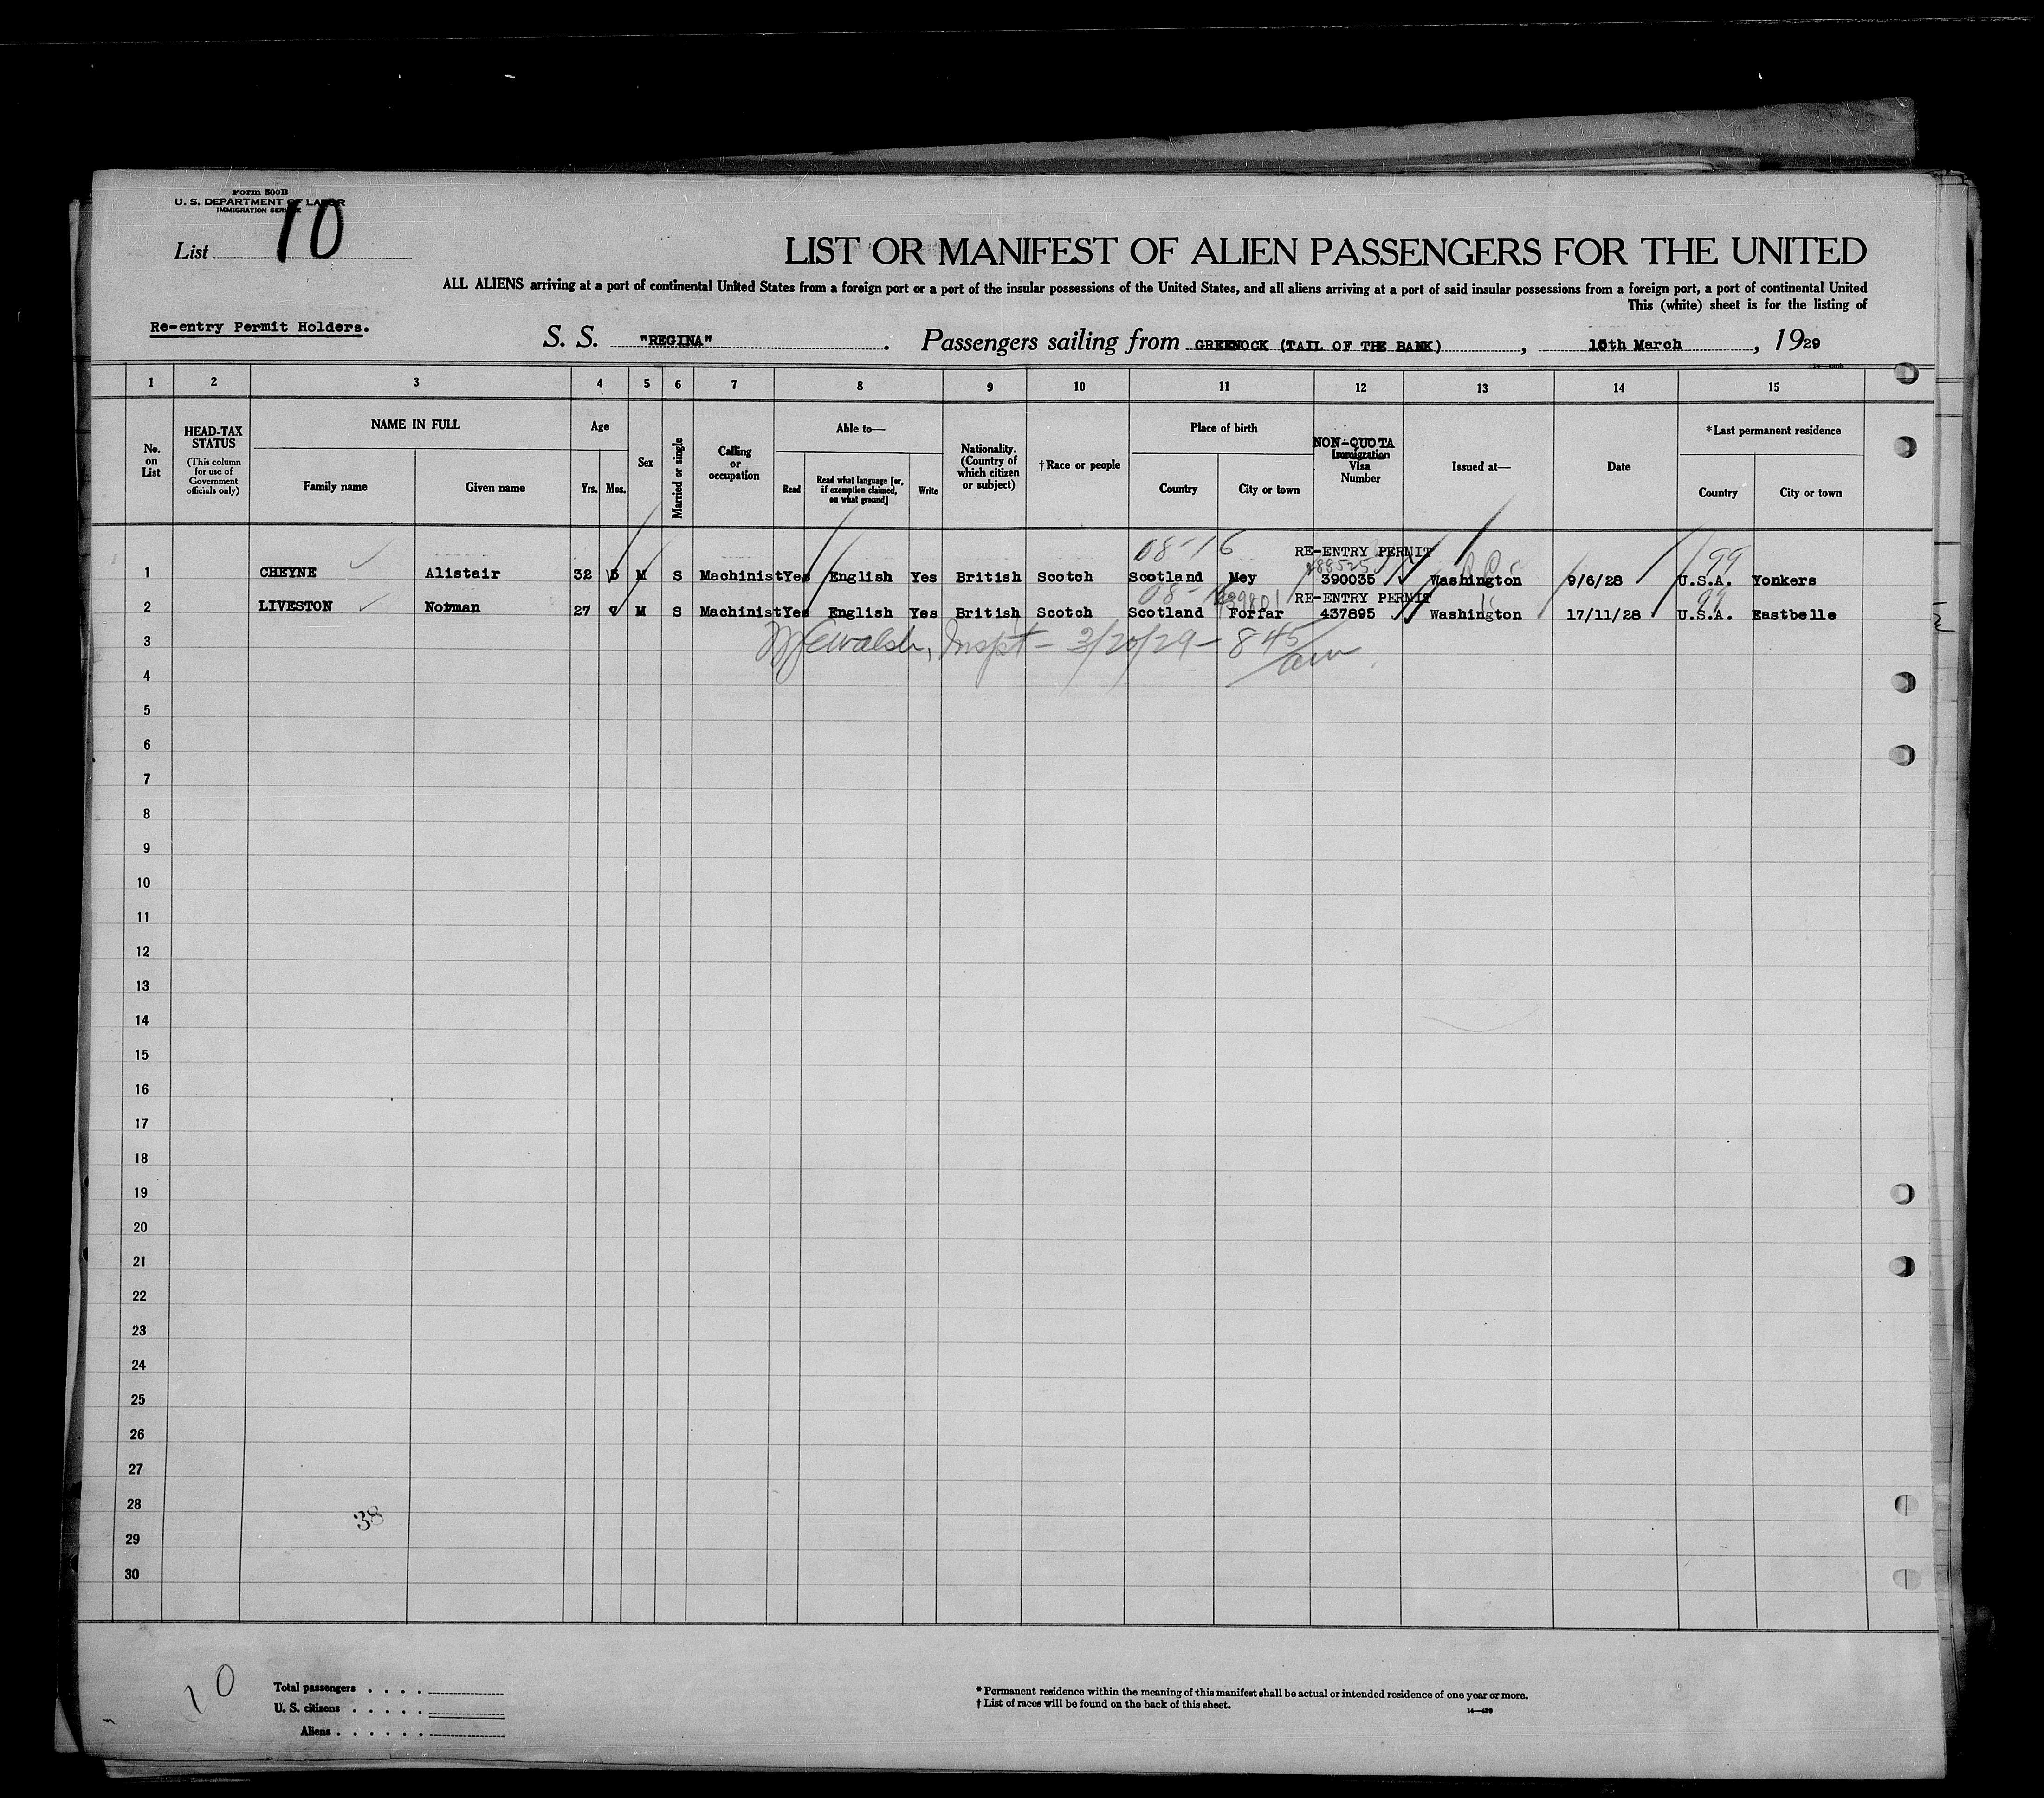 Form 500B
U. S. DEPARTMENT OF LABOR
IMMIGRATION SERVICE
List 10
LIST OR MANIFEST OF ALIEN PASSENGERS FOR THE UNITED
ALL ALIENS arriving at a port of continental United States from a foreign port or a port of the insular possessions of the United States, and all aliens arriving at a port of said insular possessions from a foreign port, a port of continental United
This (white) sheet is for the listing of
Re-entry Permit Holders.
S. S. "REGINA". Passengers sailing from GREENOCK (TAIL OF THE BANK), March, 1929
1 2 3 4 5 6 7 8 9 10 11 12 13 14 15
No. on List
HEAD-TAX STATUS
(This column for use of Government officials only)
NAME IN FULL
Family name Given name
Age
Yrs. Mos.
Sex
Married or single
Calling or occupation
Able to—
Read
Read what language [or, if exemption claimed, on what ground]
Write
Nationality. (Country of which citizen or subject)
†Race or people
Place of birth
Country City or town
NON-QUOTA
Immigration Visa Number
Issued at—
Date
*Last permanent residence
Country City or town
08-16 RE-ENTRY PERMIT 99
1 CHEYNE Alistair 32 5 M S Machinist Yes English Yes British Scotch Scotland Mey 390035 Washington 9/6/28 U.S.A. Yonkers
RE-ENTRY PERMIT 99
2 LIVESTON Norman 27 7 M S Machinist Yes English Yes British Scotch Scotland Forfar 437895 Washington 17/11/28 U.S.A. Eastbelle
Walsh, Inspt - 3/20/29 - 8 45 am
3
4
5
6
7
8
9
10
11
12
13
14
15
16
17
18
19
20
21
22
23
24
25
26
27
28
38
29
30
10
Total passengers . . . .
U. S. citizens . . . . .
Aliens . . . . . .
* Permanent residence within the meaning of this manifest shall be actual or intended residence of one year or more.
† List of races will be found on the back of this sheet.